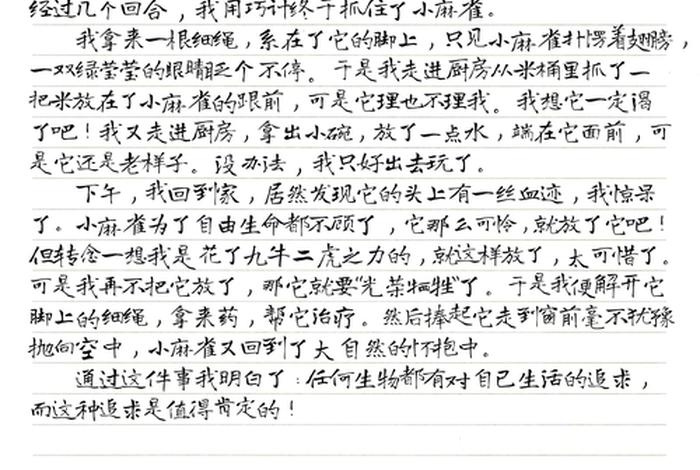 经过几个回合，我用巧计终于抓住了小麻雀。
我拿来一根细绳，系在了它的脚上，只见小麻雀扑愣着翅膀，
一双绿莹莹的眼睛眨个不停。于是我走进厨房从米桶里抓了一
把米放在了小麻雀的跟前，可是它理也不理我。我想它一定渴
了吧！我又走进厨房，拿出小碗，放了一点水，端在它面前，可
是它还是老样子。没办法，我只好出去玩了。
下午，我回到家，居然发现它的头上有一丝血迹，我惊呆
了。小麻雀为了自由生命都不顾了，它那么可怜，就放了它吧！
但转念一想我是花了九牛二虎之力的，就这样放了，太可惜了。
可是我再不把它放了，那它就要“光荣牺牲”了。于是我便解开它
脚上的细绳，拿来药，帮它治疗。然后捧起它走到窗前毫不犹豫
抛向空中，小麻雀又回到了大自然的怀抱中。
通过这件事我明白了：任何生物都有对自己生活的追求，
而这种追求是值得肯定的！